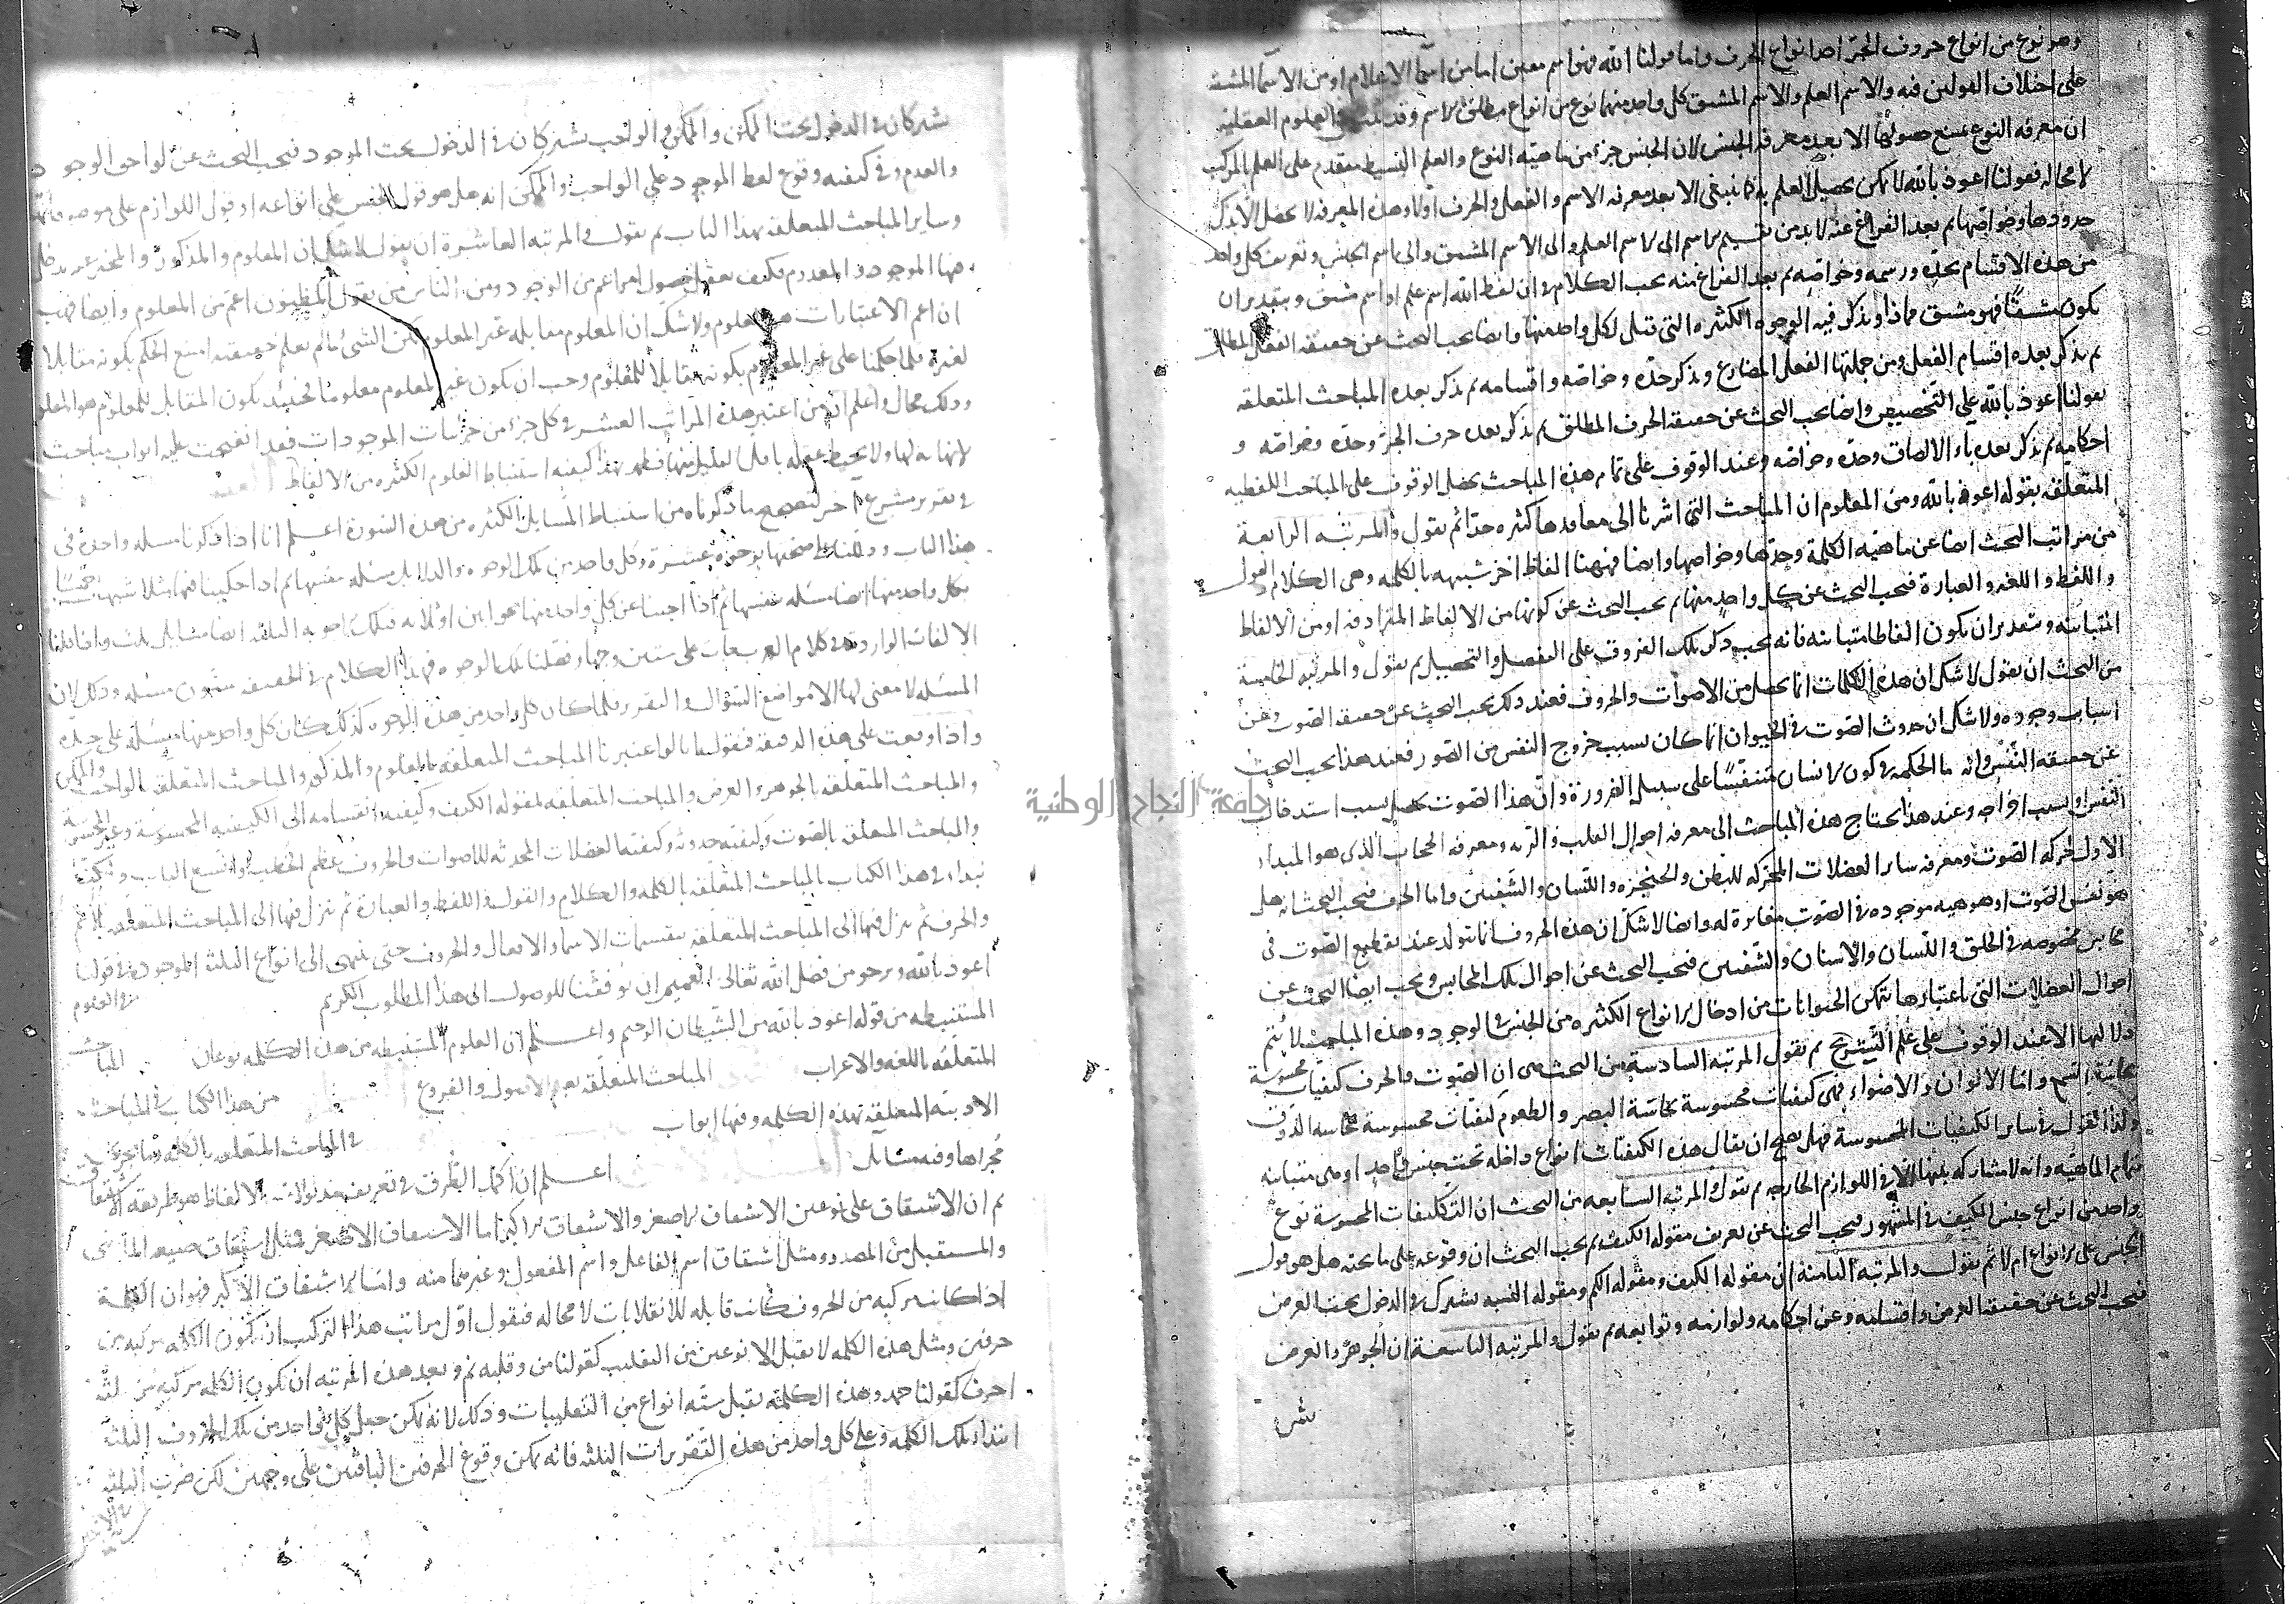 وهو نوع من انواع حروف الجر احد انواع الحرف واما قولنا الله فهو اسم معين اما من اسما الاعلام او من الاسما المشتقة
على اختلاف القولين فيه والاسم العلم والاسم المشتق كل واحد منهما نوع من انواع مطلق الاسم وقد ثبت في العلوم العقلية
ان معرفة النوع يمتنع حصولها الا بعد معرفة الجنس لان الجنس جزء من ماهية النوع والعلم البسيط مقدم على العلم بالمركب
لا محالة فقولنا اعوذ بالله لا يمكن تحصيل العلم به كما ينبغي الا بعد معرفة الاسم والفعل والحرف اولا وهذه المعرفة لا تحصل الا بذكر
حدودها وخواصها ثم بعد الفراغ عنه لا بد من تقسيم الاسم الى الاسم العلم والى الاسم المشتق والى اسم الجنس وتعريف كل واحد
من هذه الاقسام بحده ورسمه وخواصه ثم بعد الفراغ منه يجب الكلام في ان لفظ الله اسم علم او اسم مشتق وبتقدير ان
يكون مشتقا فهو مشتق مماذا ويذكر فيه الوجوه الكثيرة التي قيل لكل واحد منها وايضا يجب البحث عن حقيقة الفعل المطلق
ثم يذكر بعده اقسام الفعل ومن جملتها الفعل المضارع ويذكر حده وخواصه واقسامه ثم يذكر بعده المباحث المتعلقة
بقولنا اعوذ بالله على التخصيص وايضا يجب البحث عن حقيقة الحرف المطلق ثم يذكر بعده حرف الجر وحده وخواصه و
احكامه ثم يذكر بعده باء الالصاق وحده وخواصه وعند الوقوف على تمام هذه المباحث يحصل الوقوف على المباحث اللفظية
المتعلقة بقوله اعوذ بالله ومن المعلوم ان المباحث التي اشرنا الى معاقدها كثيرة جدا ثم نقول والمرتبة الرابعة
من مراتب البحث ايضا عن ماهية الكلمة وحدها وخواصها وايضا فههنا الفاظ اخر شبيهة بالكلمة وهي الكلام والقول
واللفظ واللغة والعبارة فيجب البحث عن كل واحد منها ثم يجب البحث عن كونها من الالفاظ المترادفة او من الالفاظ
المتباينة وبتقدير ان يكون الفاظا متباينة فانه يجب ذكر تلك الفروق على التفصيل والتحصيل ثم نقول والمرتبة الخامسة
من البحث ان نقول لا شك ان هذه الكلمات انما تحصل من الاصوات والحروف فعند ذلك يجب البحث عن حقيقة الصوت وعن
اسباب وجوده ولا شك ان حدوث الصوت في الحيوان انما كان بسبب خروج النفس من الصدر فعند هذا يجب البحث
عن حقيقة النفس وانه ما الحكمة في كون الانسان متنفسا على سبيل الضرورة وان هذا الصوت يحصل بسبب استدخال
النفس او بسبب اخراجه وعند هذا تحتاج هذه المباحث الى معرفة احوال القلب والرية ومعرفة الحجاب الذي هو المبدا
الاول لحركة الصوت ومعرفة ساير العضلات المحركة للبطن والحنجرة واللسان والشفتين واما الحرف فيجب البحث انه هل
هو نفس الصوت او هو هيئة موجودة في الصوت مغايرة له وايضا لا شك ان هذه الحروف انما تتولد عند تقطيع الصوت في
محابس مخصوصة في الحلق واللسان والاسنان والشفتين فيجب البحث عن احوال تلك المحابس ويجب ايضا البحث عن
احوال العضلات التي باعتبارها تتمكن الحيوانات من ادخال الانواع الكثيرة من الجنس في الوجود وهذه المباحث لا يتم
دلالتها الا عند الوقوف على علم التشريح ثم نقول المرتبة السادسة من البحث هي ان الصوت والحرف كيفيات محسوسة
بحاسة السمع واما الالوان والاضواء فهي كيفيات محسوسة بحاسة البصر والطعوم كيفيات محسوسة بحاسة الذوق
وكذا القول في ساير الكيفيات المحسوسة فهل يصح ان يقال هذه الكيفيات انواع داخلة تحت جنس واحد او هي متباينة
بتمام الماهية وانه لا مشاركة بينها الا في اللوازم الخارجة ثم نقول والمرتبة السابعة من البحث ان الكيفيات المحسوسة نوع
واحد من انواع جنس الكيف في المشهور فيجب البحث عن تعريف مقولة الكيف ثم يجب البحث ان وقوعه على ما تحته هل هو قول
الجنس على الانواع ام لا ثم نقول والمرتبة الثامنة ان مقولة الكيف ومقولة الكم ومقولة النسبة تشترك في الدخول تحت العرض
فيجب البحث عن حقيقة العرض واقسامه وعن احكامه ولوازمه وتوابعه ثم نقول والمرتبة التاسعة ان الجوهر والعرض
يشتركان في الدخول تحت الممكن والممكن والواجب يشتركان في الدخول تحت الموجود فيجب البحث عن لواحق الوجود
والعدم وفي كيفية وقوع لفظ الموجود على الواجب والممكن انه هل هو قول الجنس على انواعه او قول اللوازم على موصوفاتها
وساير المباحث المتعلقة بهذا الباب ثم نقول والمرتبة العاشرة ان نقول لا شك ان المعلوم والمذكور والمخبر عنه يدخل
فيها الموجود والمعدوم فكيف يعقل حصول امر اعم من الوجود ومن الناس من يقول المظنون اعم من المعلوم وايضا فهب
ان اعم الاعتبارات هو المعلوم ولا شك ان المعلوم مقابله غير المعلوم لكن الشيء ما لم يعلم حقيقته امتنع الحكم بكونه مقابلا
لغيره فلما حكمنا على غير المعلوم بكونه مقابلا للمعلوم وجب ان يكون غير المعلوم معلوما فحينئذ يكون المقابل للمعلوم هو المعلوم
وذلك محال واعلم ان من اعتبر هذه المراتب العشر في كل جزء من جزئيات الموجودات فقد انفتحت عليه ابواب مباحث
لا نهاية لها ولا يحيط عقله باقل القليل منها فظهر بهذا كيفية استنباط العلوم الكثيرة من الالفاظ
في تقرير مشرع اخر لتصحيح ما ذكرناه من استنباط المسايل الكثيرة من هذه السورة اعلم انا اذا ذكرنا مسئلة واحدة في
هذا الباب ودللنا على صحتها بوجوه عشرة وكل واحد من تلك الوجوه والدلايل مسئلة بنفسها ثم اذا حكينا فيها مثلا شبهات خمسا
فكل واحد منها ايضا مسئلة بنفسها ثم اذا اجبنا عن كل واحد منها بجوابين او ثلاثة فتلك الاجوبة الثلثة ايضا مسايل ثلث واذا قلنا
الالفاظ الواردة في كلام العرب جاءت على ستين وجها وفصلنا تلك الوجوه فهذا الكلام في الحقيقة ستون مسئلة وذلك لان
المسئلة لا معنى لها الا مواضع السؤال والتقرير فلما كان كل واحد من هذه الوجوه كذلك كان كل واحد منها مسئلة على حدة
واذا وقفت على هذه الدقيقة فنقول انا لو اعتبرنا المباحث المتعلقة بالمعلوم والمذكور والمباحث المتعلقة بالواجب والممكن
والمباحث المتعلقة بالجوهر والعرض والمباحث المتعلقة بمقولة الكيف وكيفية انقسامه الى الكيفية المحسوسة وغير المحسوسة
والمباحث المتعلقة بالصوت وكيفية حدوثه وكيفية العضلات المحدثة للاصوات والحروف عظم الخطب واتسع الباب ولكنا
نبداء في هذا الكتاب بالمباحث المتعلقة بالكلمة والكلام والقول واللفظ والعبارة ثم ننزل فيها الى المباحث المتعلقة بالاسم
والحرف ثم ننزل فيها الى المباحث المتعلقة بتقسيمات الاسما والافعال والحروف حتى ننتهي الى انواع الثلثة الموجودة في قولنا
اعوذ بالله ونرجو من فضل الله تعالى العميم ان يوفقنا للوصول الى هذا المطلوب الكريم في العلوم
المستنبطة من قوله اعوذ بالله من الشيطان الرجيم واعلم ان العلوم المستنبطة من هذه الكلمة نوعان المباحث
المتعلقة باللغة والاعراب المباحث المتعلقة بعلم الاصول والفروع من هذا الكتاب في المباحث
الادبية المتعلقة بهذه الكلمة وفيها ابواب في المباحث المتعلقة بالكلمة وما يجري
مجراها وفيه مسايل اعلم ان اكمل الطرق في تعريف مدلولات الالفاظ هو طريقة الاشتقاق
ثم ان الاشتقاق على نوعين الاشتقاق الاصغر والاشتقاق الاكبر اما الاشتقاق الاصغر فمثل اشتقاق صيغة الماضي
والمستقبل من المصدر ومثل اشتقاق اسم الفاعل واسم المفعول وغيرهما منه واما الاشتقاق الاكبر فهو ان الكلمة
اذا كانت مركبة من الحروف كانت قابلة للانقلابات لا محالة فنقول اول مراتب هذا التركيب ان تكون الكلمة مركبة من
حرفين ومثل هذه الكلمة لا تقبل الا نوعين من التقليب كقولنا من وقلبه نم وبعد هذه المرتبة ان تكون الكلمة مركبة من ثلثة
احرف كقولنا حمد وهذه الكلمة تقبل ستة انواع من التقليبات وذلك لانه يمكن جعل كل واحد من تلك الحروف الثلثة
ابتداء تلك الكلمة وعلى كل واحد من هذه التقديرات الثلثة فانه يمكن وقوع الحرفين الباقيين على وجهين لكن ضرب الثلثة
جامعة النجاح الوطنية